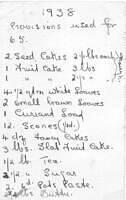 1938
Provisions used for
65.
2 Seed Cakes 2 lb
1 Fruit Cake 3 lbs
1 " " 2 "
4 1/2 White Loaves
2 Small brown Loaves
1 Currant Loaf
12 Scones
4 dz Cakes
3 lbs Slab Fruit Cake.
1/2 lb Tea.
2 1/2 " Sugar
2 6d Pots Paste.
Butter.